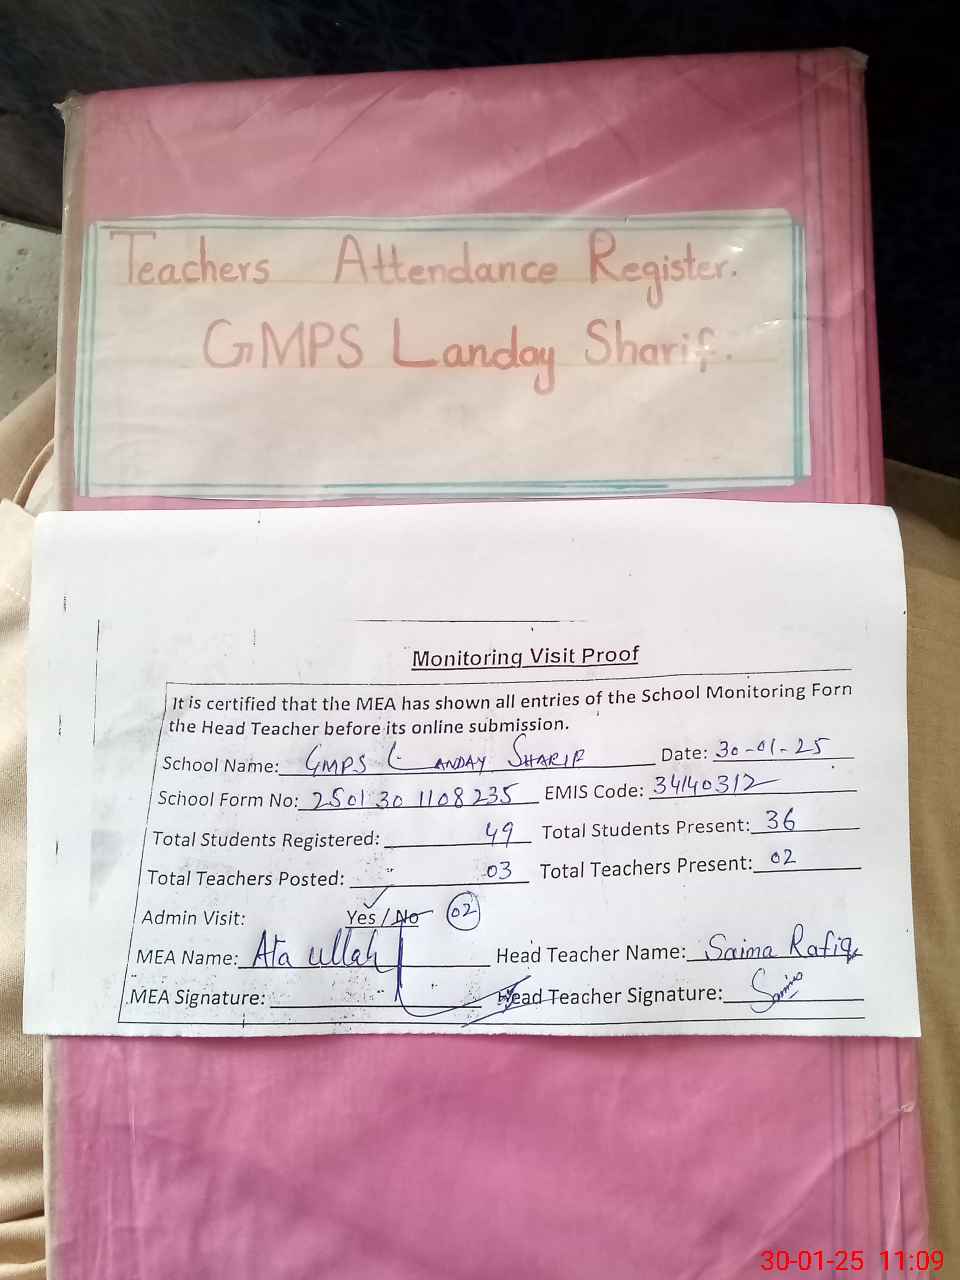 Teachers Attendance Register.
GMPS Landay Sharif.
Monitoring Visit Proof
It is certified that the MEA has shown all entries of the School Monitoring Forn
the Head Teacher before its online submission.
School Name: GMPS LANDAY SHARIF Date: 30-01-25
School Form No: 2501301108235 EMIS Code: 34140312
Total Students Registered: 49 Total Students Present: 36
Total Teachers Posted: 03 Total Teachers Present: 02
Admin Visit: Yes / No 02
MEA Name: Ata ullah Head Teacher Name: Saima Rafiq
MEA Signature: Head Teacher Signature: Saima
30-01-25 11:09